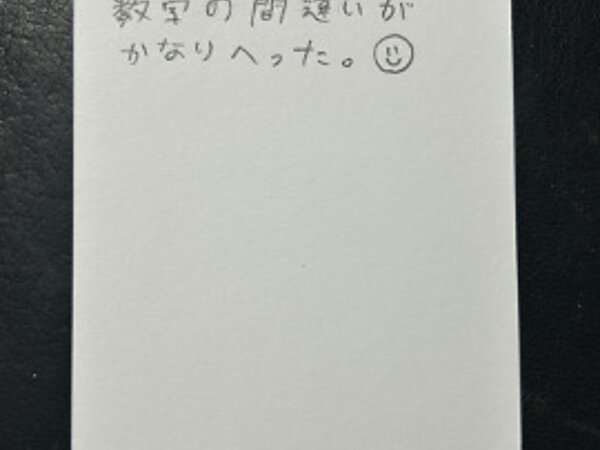 数字の間違いが
かなりへった。☺